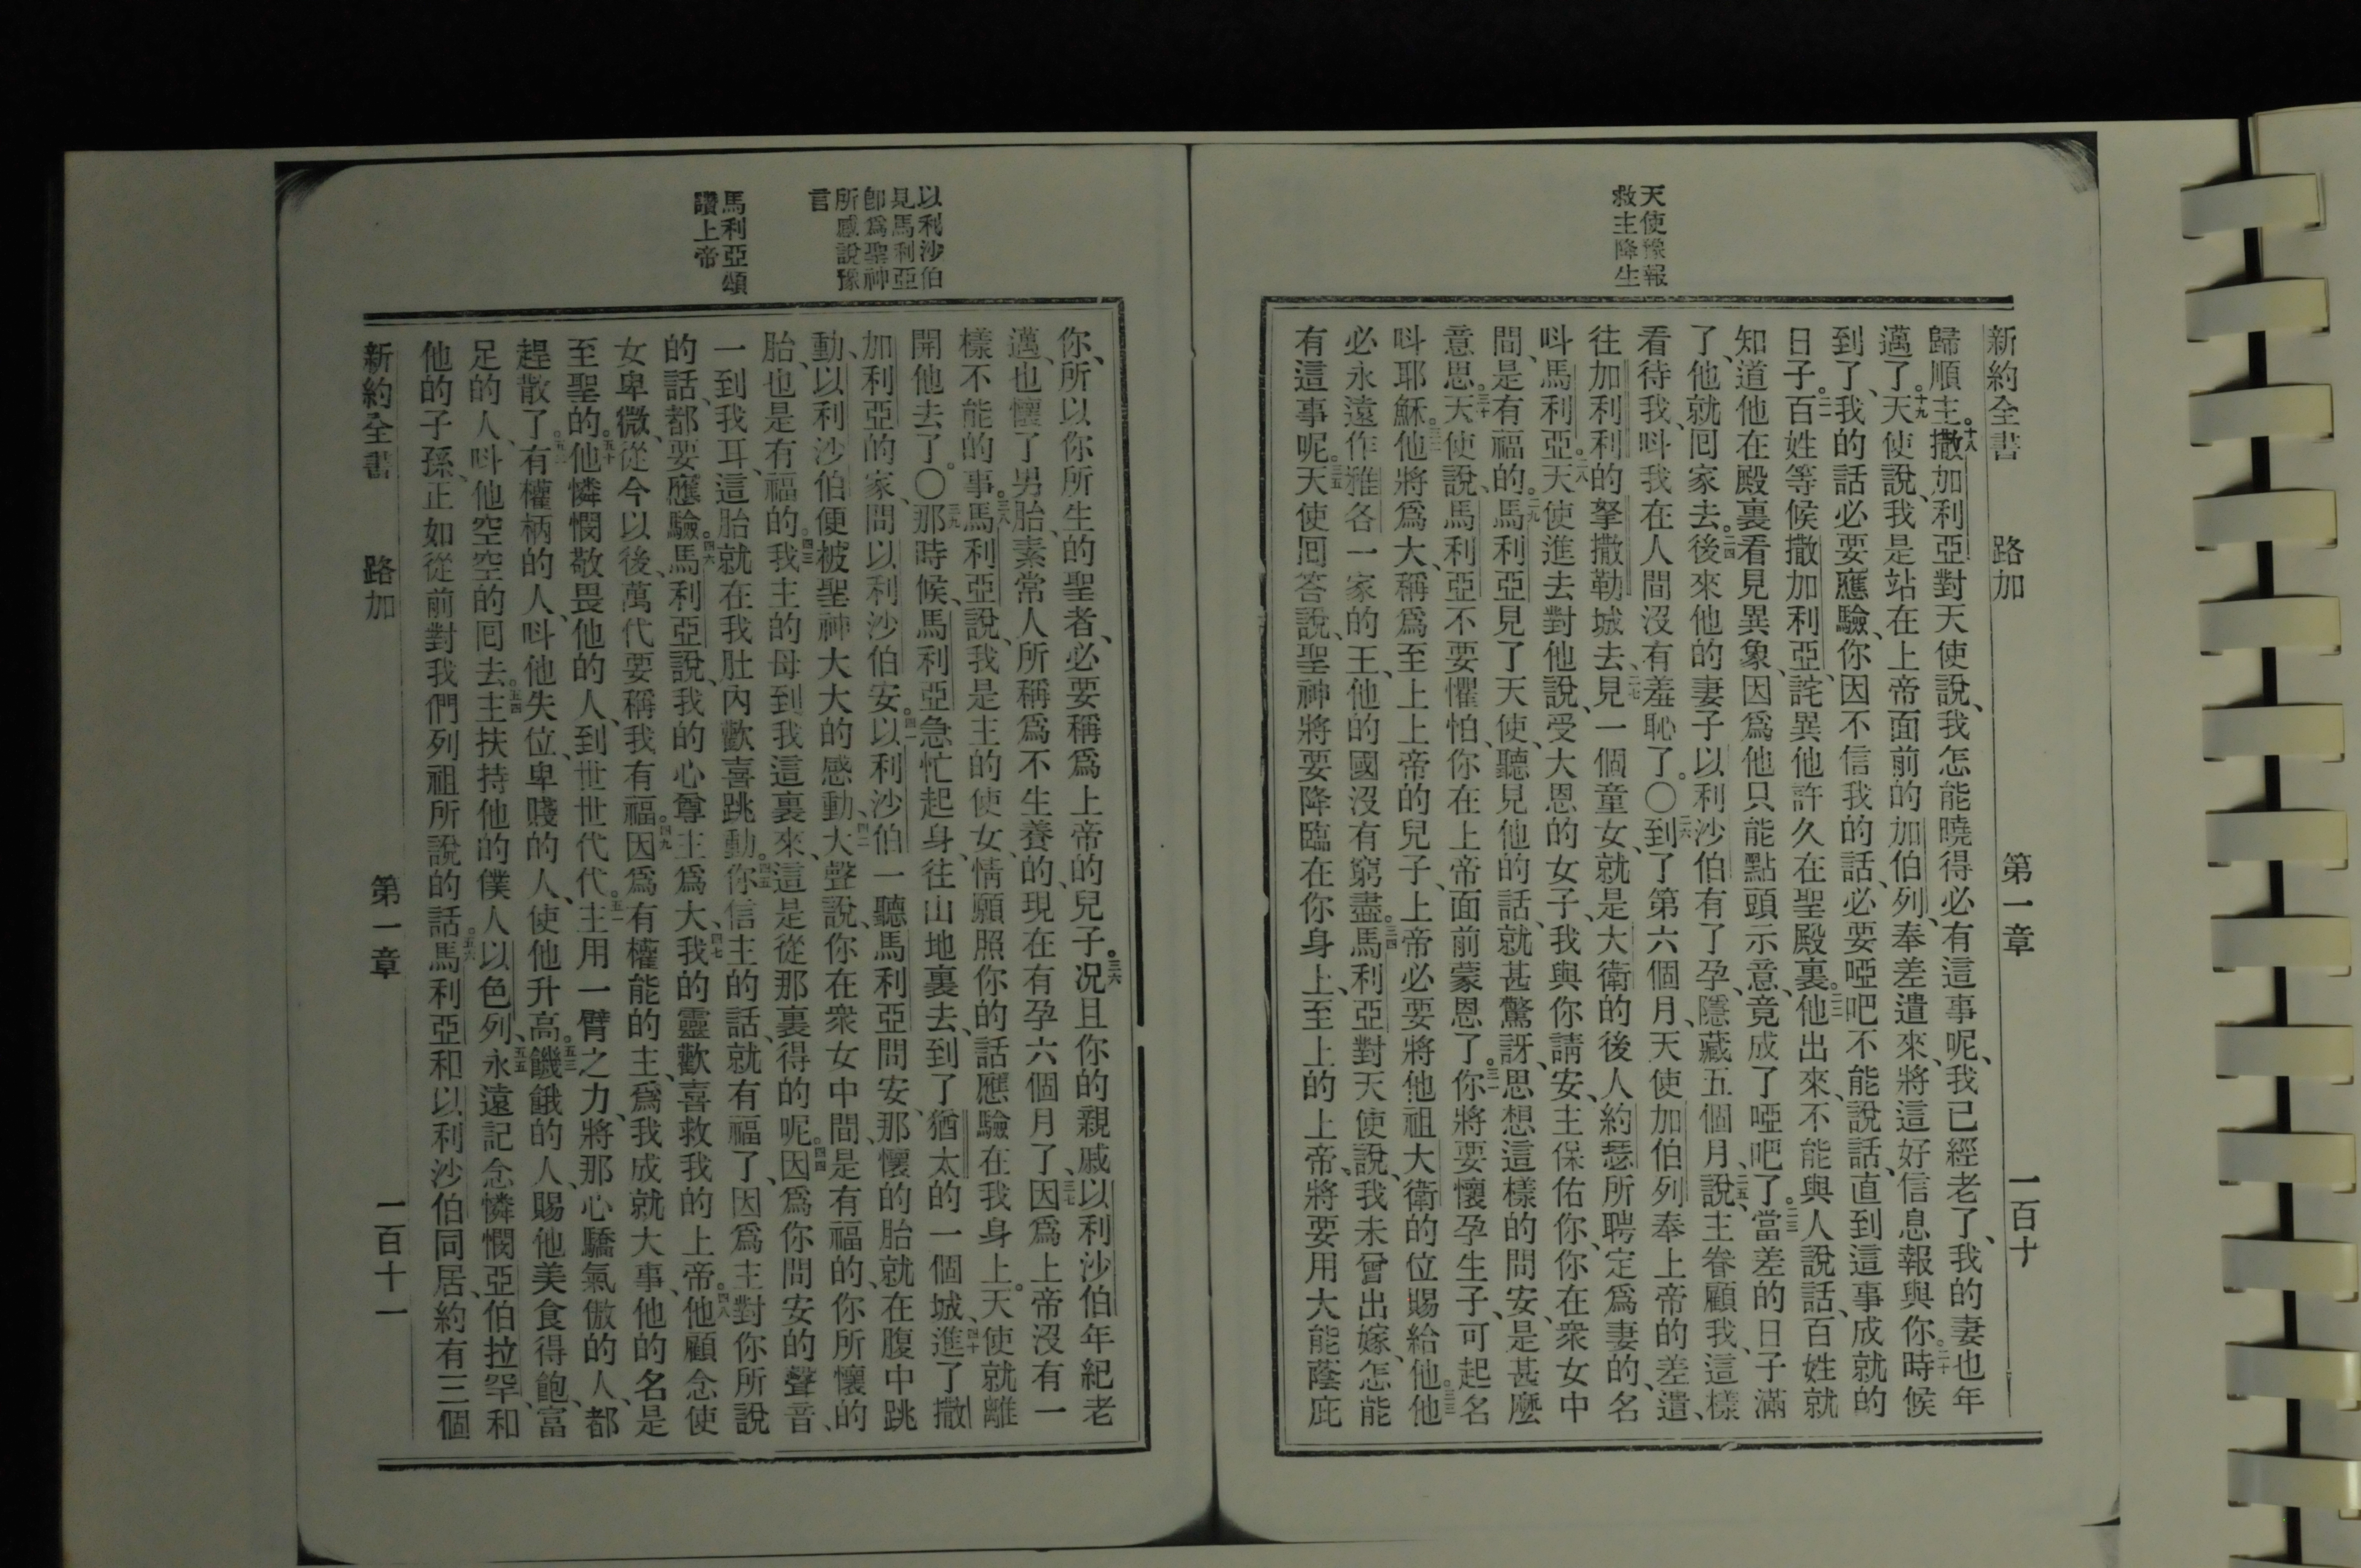 天使豫報
救主降生
新約全書 路加 第一章 一百十
歸順主。十八撒加利亞對天使說、我怎能曉得必有這事呢、我已經老了、我的妻也年
邁了。十九天使說、我是站在上帝面前的加伯列、奉差遣來、將這好信息報與你。二十時候
到了、我的話必要應驗、你因不信我的話、必要啞吧不能說話、直到這事成就的
日子。二一百姓等候撒加利亞、詫異他許久在聖殿裏。二二他出來、不能與人說話、百姓就
知道他在殿裏看見異象、因爲他只能點頭示意、竟成了啞吧了。二三當差的日子滿
了、他就囘家去。二四後來他的妻子以利沙伯有了孕、隱藏五個月、二五說主眷顧我、這樣
看待我、呌我在人間沒有羞恥了。〇二六到了第六個月、天使加伯列奉上帝的差遣、
往加利利的拏撒勒城去、二七見一個童女、就是大衛的後人約瑟所聘定爲妻的、名
呌馬利亞。二八天使進去對他說、受大恩的女子、我與你請安、主保佑你、你在衆女中
間、是有福的。二九馬利亞見了天使、聽見他的話、就甚驚訝、思想這樣的問安、是甚麼
意思。三十天使說、馬利亞不要懼怕、你在上帝面前蒙恩了。三一你將要懷孕生子、可起名
呌耶穌。三二他將爲大、稱爲至上上帝的兒子、上帝必要將他祖大衛的位賜給他。三三他
必永遠作雅各一家的王、他的國沒有窮盡。三四馬利亞對天使說、我未曾出嫁、怎能
有這事呢。三五天使囘答說、聖神將要降臨在你身上、至上的上帝、將要用大能蔭庇
以利沙伯
見馬利亞
卽爲聖神
所感說豫
言
馬利亞頌
讚上帝
你、所以你所生的聖者、必要稱爲上帝的兒子。三六况且你的親戚以利沙伯年紀老
邁、也懷了男胎、素常人所稱爲不生養的、現在有孕六個月了、三七因爲上帝沒有一
樣不能的事。三八馬利亞說、我是主的使女、情願照你的話應驗在我身上。天使就離
開他去了。〇三九那時候、馬利亞急忙起身、往山地裏去、到了猶太的一個城、四十進了撒
加利亞的家、問以利沙伯安。四一以利沙伯一聽馬利亞問安、那懷的胎就在腹中跳
動、以利沙伯便被聖神大大的感動、四二大聲說、你在衆女中間、是有福的、你所懷的
胎、也是有福的。四三我主的母到我這裏來、這是從那裏得的呢。四四因爲你問安的聲音、
一到我耳、這胎就在我肚內歡喜跳動。四五你信主的話、就有福了、因爲主對你所說
的話、都要應驗。四六馬利亞說、我的心尊主爲大、四七我的靈歡喜救我的上帝。四八他顧念使
女卑微、從今以後、萬代要稱我有福。四九因爲有權能的主、爲我成就大事、他的名是
至聖的。五十他憐憫敬畏他的人、到世世代代。五一主用一臂之力、將那心驕氣傲的人、都
趕散了。五二有權柄的人、呌他失位、卑賤的人、使他升高。五三饑餓的人、賜他美食得飽、富
足的人、呌他空空的囘去。五四主扶持他的僕人以色列、五五永遠記念憐憫亞伯拉罕、和
他的子孫、正如從前對我們列祖所說的話。五六馬利亞和以利沙伯同居、約有三個
新約全書 路加 第一章 一百十一